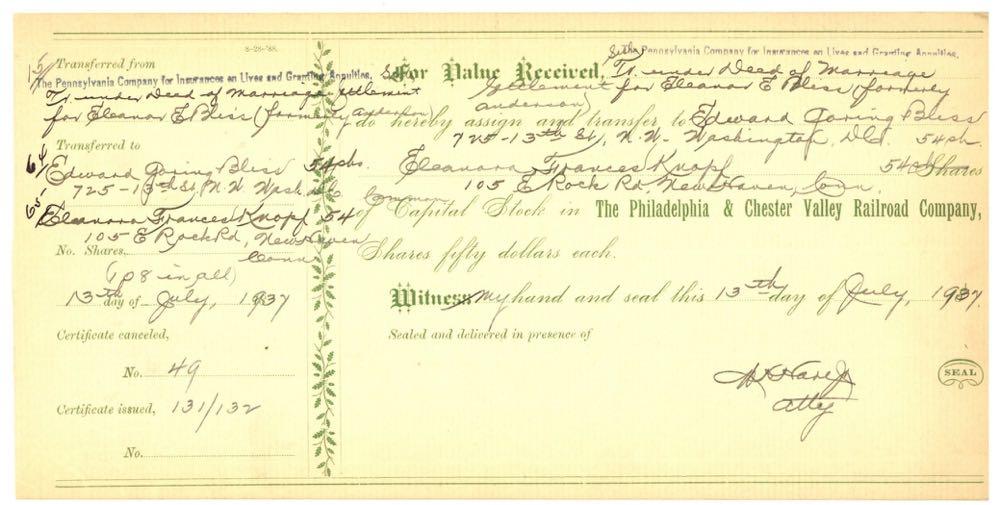 8-28-'88.
15/ Transferred from
The Pennsylvania Company for Insurances on Lives and Granting Annuities,
Tr. under Deed of Marriage Settlement
for Eleanor E Bliss (formerly Anderson)
Transferred to
64/ Edward Goring Bliss 54 shs.
725-13th St, N.W. Wash. D.C.
65/ Eleanora Frances Knopf 54
105 E Rock Rd, New Haven
No. Shares, Conn
(108 in all)
13th day of July, 1937
Certificate canceled,
No. 49
Certificate issued, 131/132
No.
The Pennsylvania Company for Insurances on Lives and Granting Annuities,
For Value Received, Tr. under Deed of Marriage
Settlement for Eleanor E Bliss (formerly
Anderson)
do hereby assign and transfer to Edward Goring Bliss
725-13th St, N.W. Washington, D.C. 54 sh.
Eleanora Frances Knopf 54 Shares
105 E. Rock Rd, New Haven, Conn.
Common
of Capital Stock in The Philadelphia & Chester Valley Railroad Company,
Shares fifty dollars each.
Witness my hand and seal this 13th day of July, 1937.
Sealed and delivered in presence of
Atty
SEAL